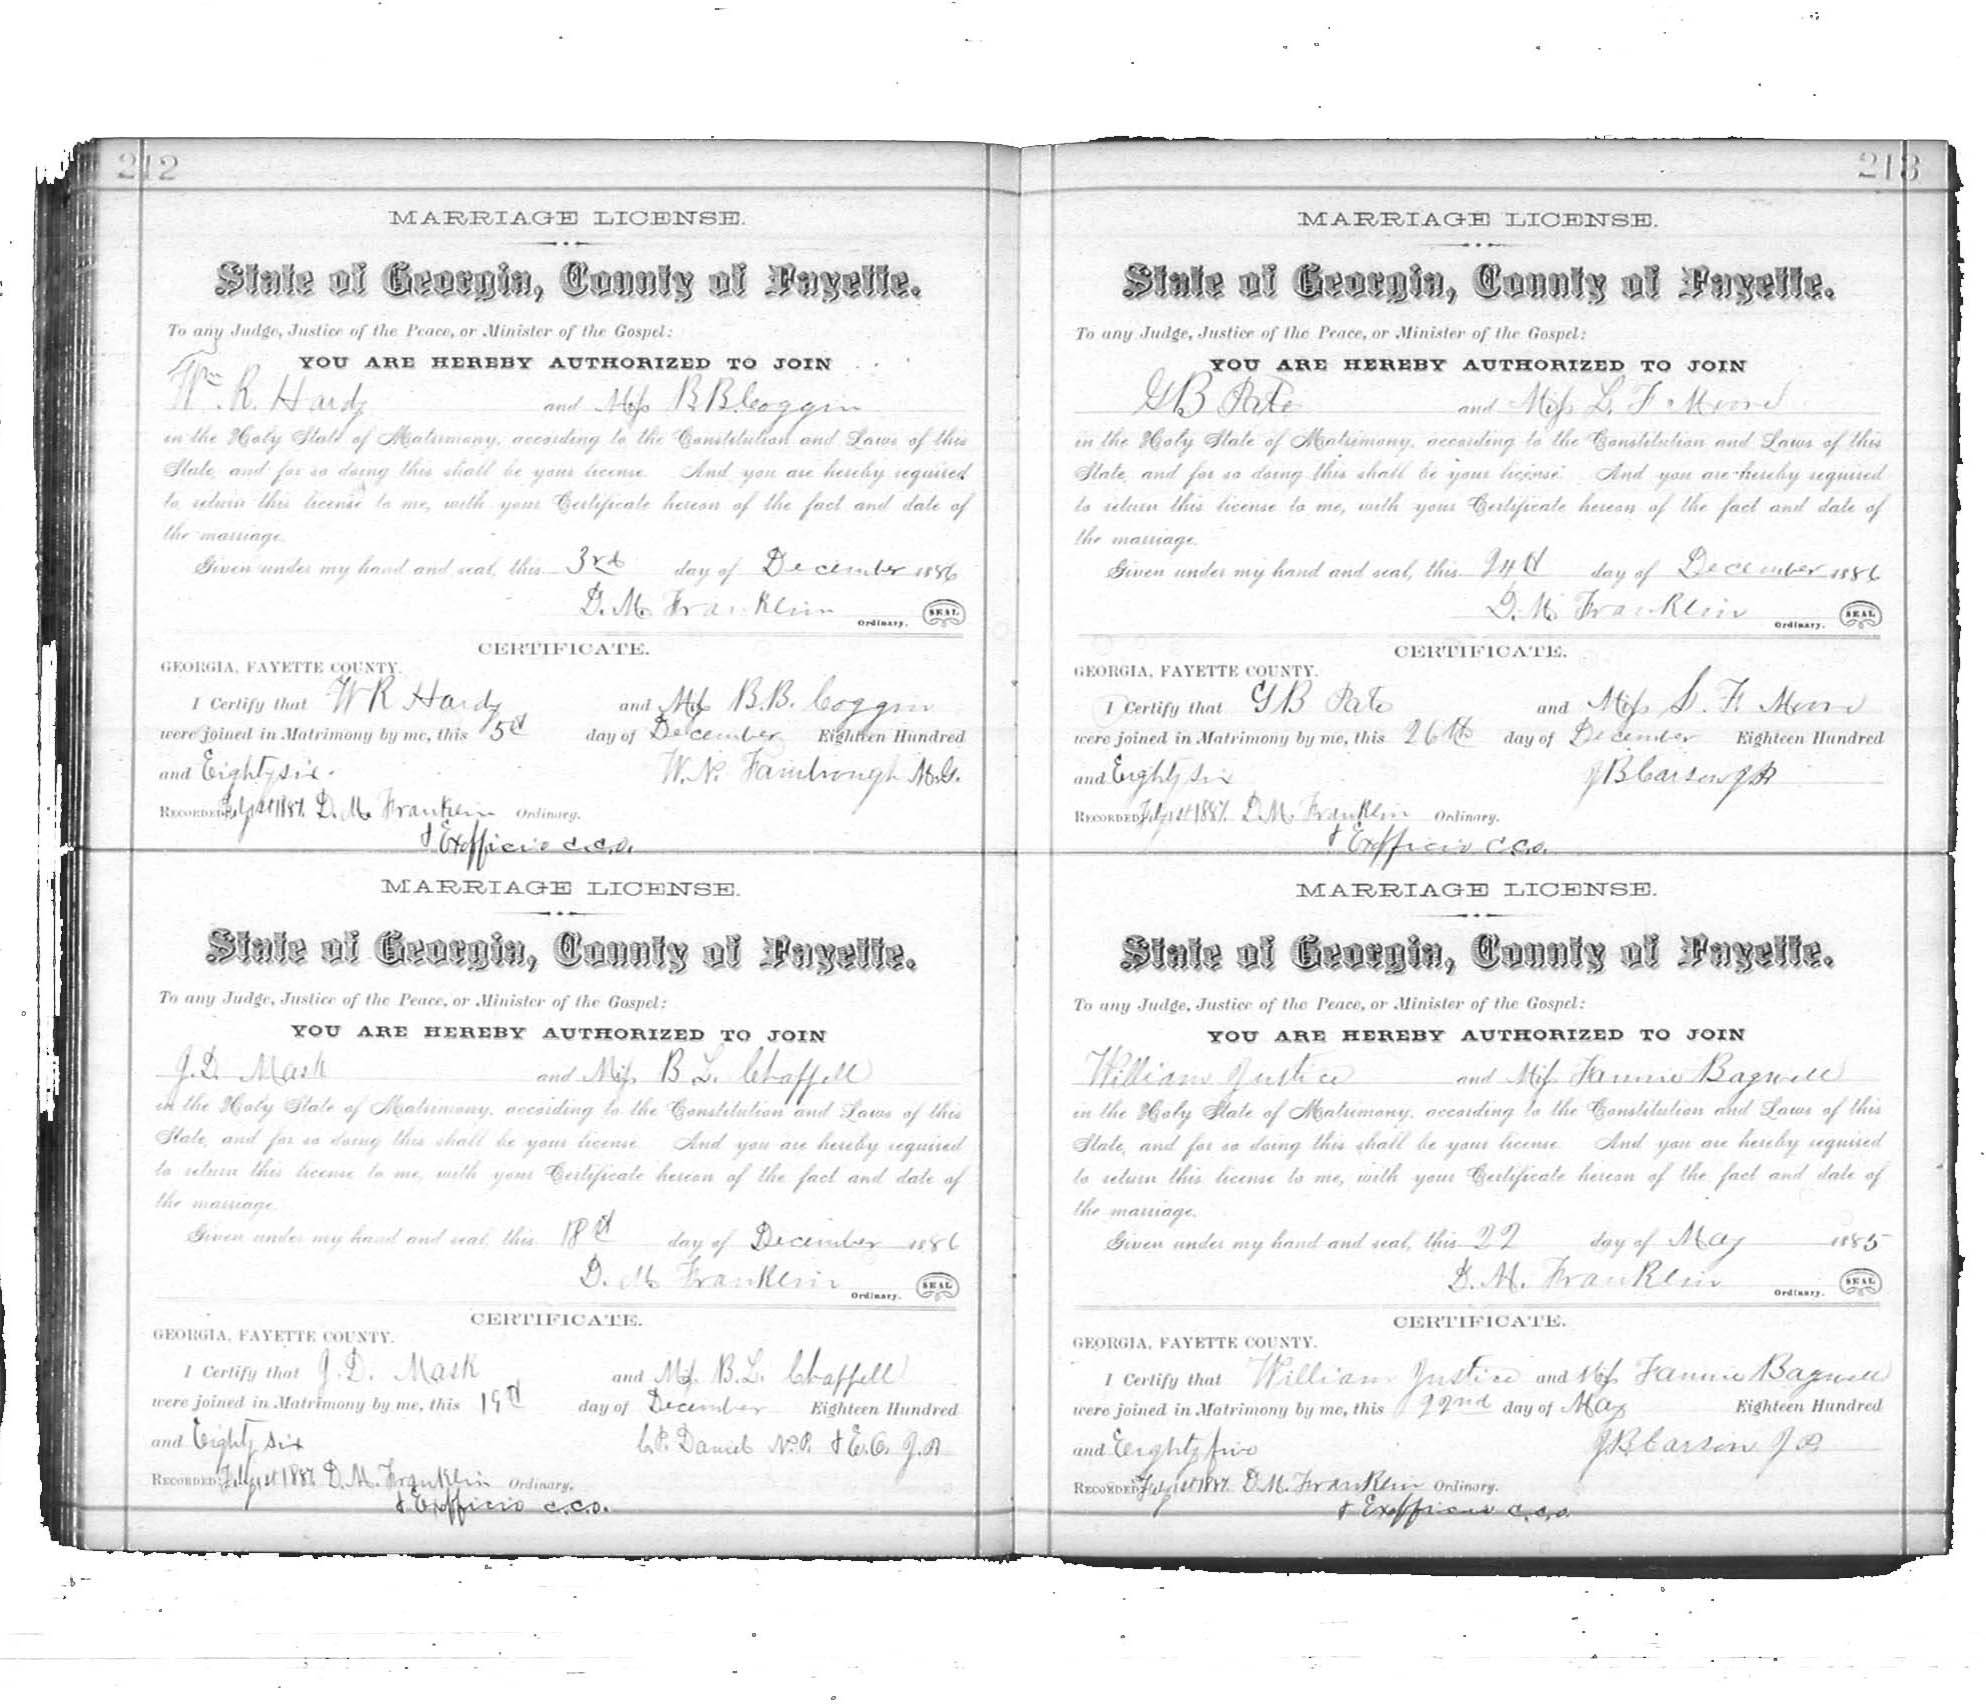 212
MARRIAGE LICENSE.
State of Georgia, County of Fayette.
To any Judge, Justice of the Peace, or Minister of the Gospel:
YOU ARE HEREBY AUTHORIZED TO JOIN
Wm. R. Hardy and Miss B B Coggin
in the Holy State of Matrimony, according to the Constitution and Laws of this
State, and for so doing this shall be your license. And you are hereby required
to return this license to me, with your Certificate hereon of the fact and date of
the marriage.
Given under my hand and seal, this 3rd day of December 1886
D. M. Franklin
Ordinary. SEAL
CERTIFICATE.
GEORGIA, FAYETTE COUNTY.
I Certify that W R Hardy and Miss B.B. Coggin
were joined in Matrimony by me, this 5th day of December Eighteen Hundred
and Eighty six. W. N. Fambrough M.G.
RECORDED, Feby 1st 1887. D. M. Franklin Ordinary.
& Exofficio c.c.o.
MARRIAGE LICENSE.
State of Georgia, County of Fayette.
To any Judge, Justice of the Peace, or Minister of the Gospel:
YOU ARE HEREBY AUTHORIZED TO JOIN
J. D. Mask and Miss B L. Chappell
in the Holy State of Matrimony, according to the Constitution and Laws of this
State, and for so doing this shall be your license. And you are hereby required
to return this license to me, with your Certificate hereon of the fact and date of
the marriage.
Given under my hand and seal, this 18th day of December 1886
D. M Franklin
Ordinary. SEAL
CERTIFICATE.
GEORGIA, FAYETTE COUNTY.
I Certify that J. D. Mask and Miss B.L. Chappell
were joined in Matrimony by me, this 19th day of December Eighteen Hundred
and Eighty six C.P. Daniel N.P. & E.O. J.P
RECORDED, Feby 1st 1887. D. M. Franklin Ordinary.
& Exofficio c.c.o.
213
MARRIAGE LICENSE.
State of Georgia, County of Fayette.
To any Judge, Justice of the Peace, or Minister of the Gospel:
YOU ARE HEREBY AUTHORIZED TO JOIN
G B Pate and Miss L. F. Moore
in the Holy State of Matrimony, according to the Constitution and Laws of this
State, and for so doing this shall be your license. And you are hereby required
to return this license to me, with your Certificate hereon of the fact and date of
the marriage.
Given under my hand and seal, this 24th day of December 1886
D. M. Franklin
Ordinary. SEAL
CERTIFICATE.
GEORGIA, FAYETTE COUNTY.
I Certify that G B Pate and Miss L. F. Moore
were joined in Matrimony by me, this 26th day of December Eighteen Hundred
and Eighty six J B Carson J P
RECORDED, Feby 1st 1887. D. M. Franklin Ordinary.
& Exofficio c.c.o.
MARRIAGE LICENSE.
State of Georgia, County of Fayette.
To any Judge, Justice of the Peace, or Minister of the Gospel:
YOU ARE HEREBY AUTHORIZED TO JOIN
William Justice and Miss Fannie Bagwell
in the Holy State of Matrimony, according to the Constitution and Laws of this
State, and for so doing this shall be your license. And you are hereby required
to return this license to me, with your Certificate hereon of the fact and date of
the marriage.
Given under my hand and seal, this 22 day of May 1885
D. M. Franklin
Ordinary. SEAL
CERTIFICATE.
GEORGIA, FAYETTE COUNTY.
I Certify that William Justice and Miss Fannie Bagwell
were joined in Matrimony by me, this 22nd day of May Eighteen Hundred
and Eighty five J B Carson J P
RECORDED, Feby 1st 1887. D. M. Franklin Ordinary.
& Exofficio c.c.o.